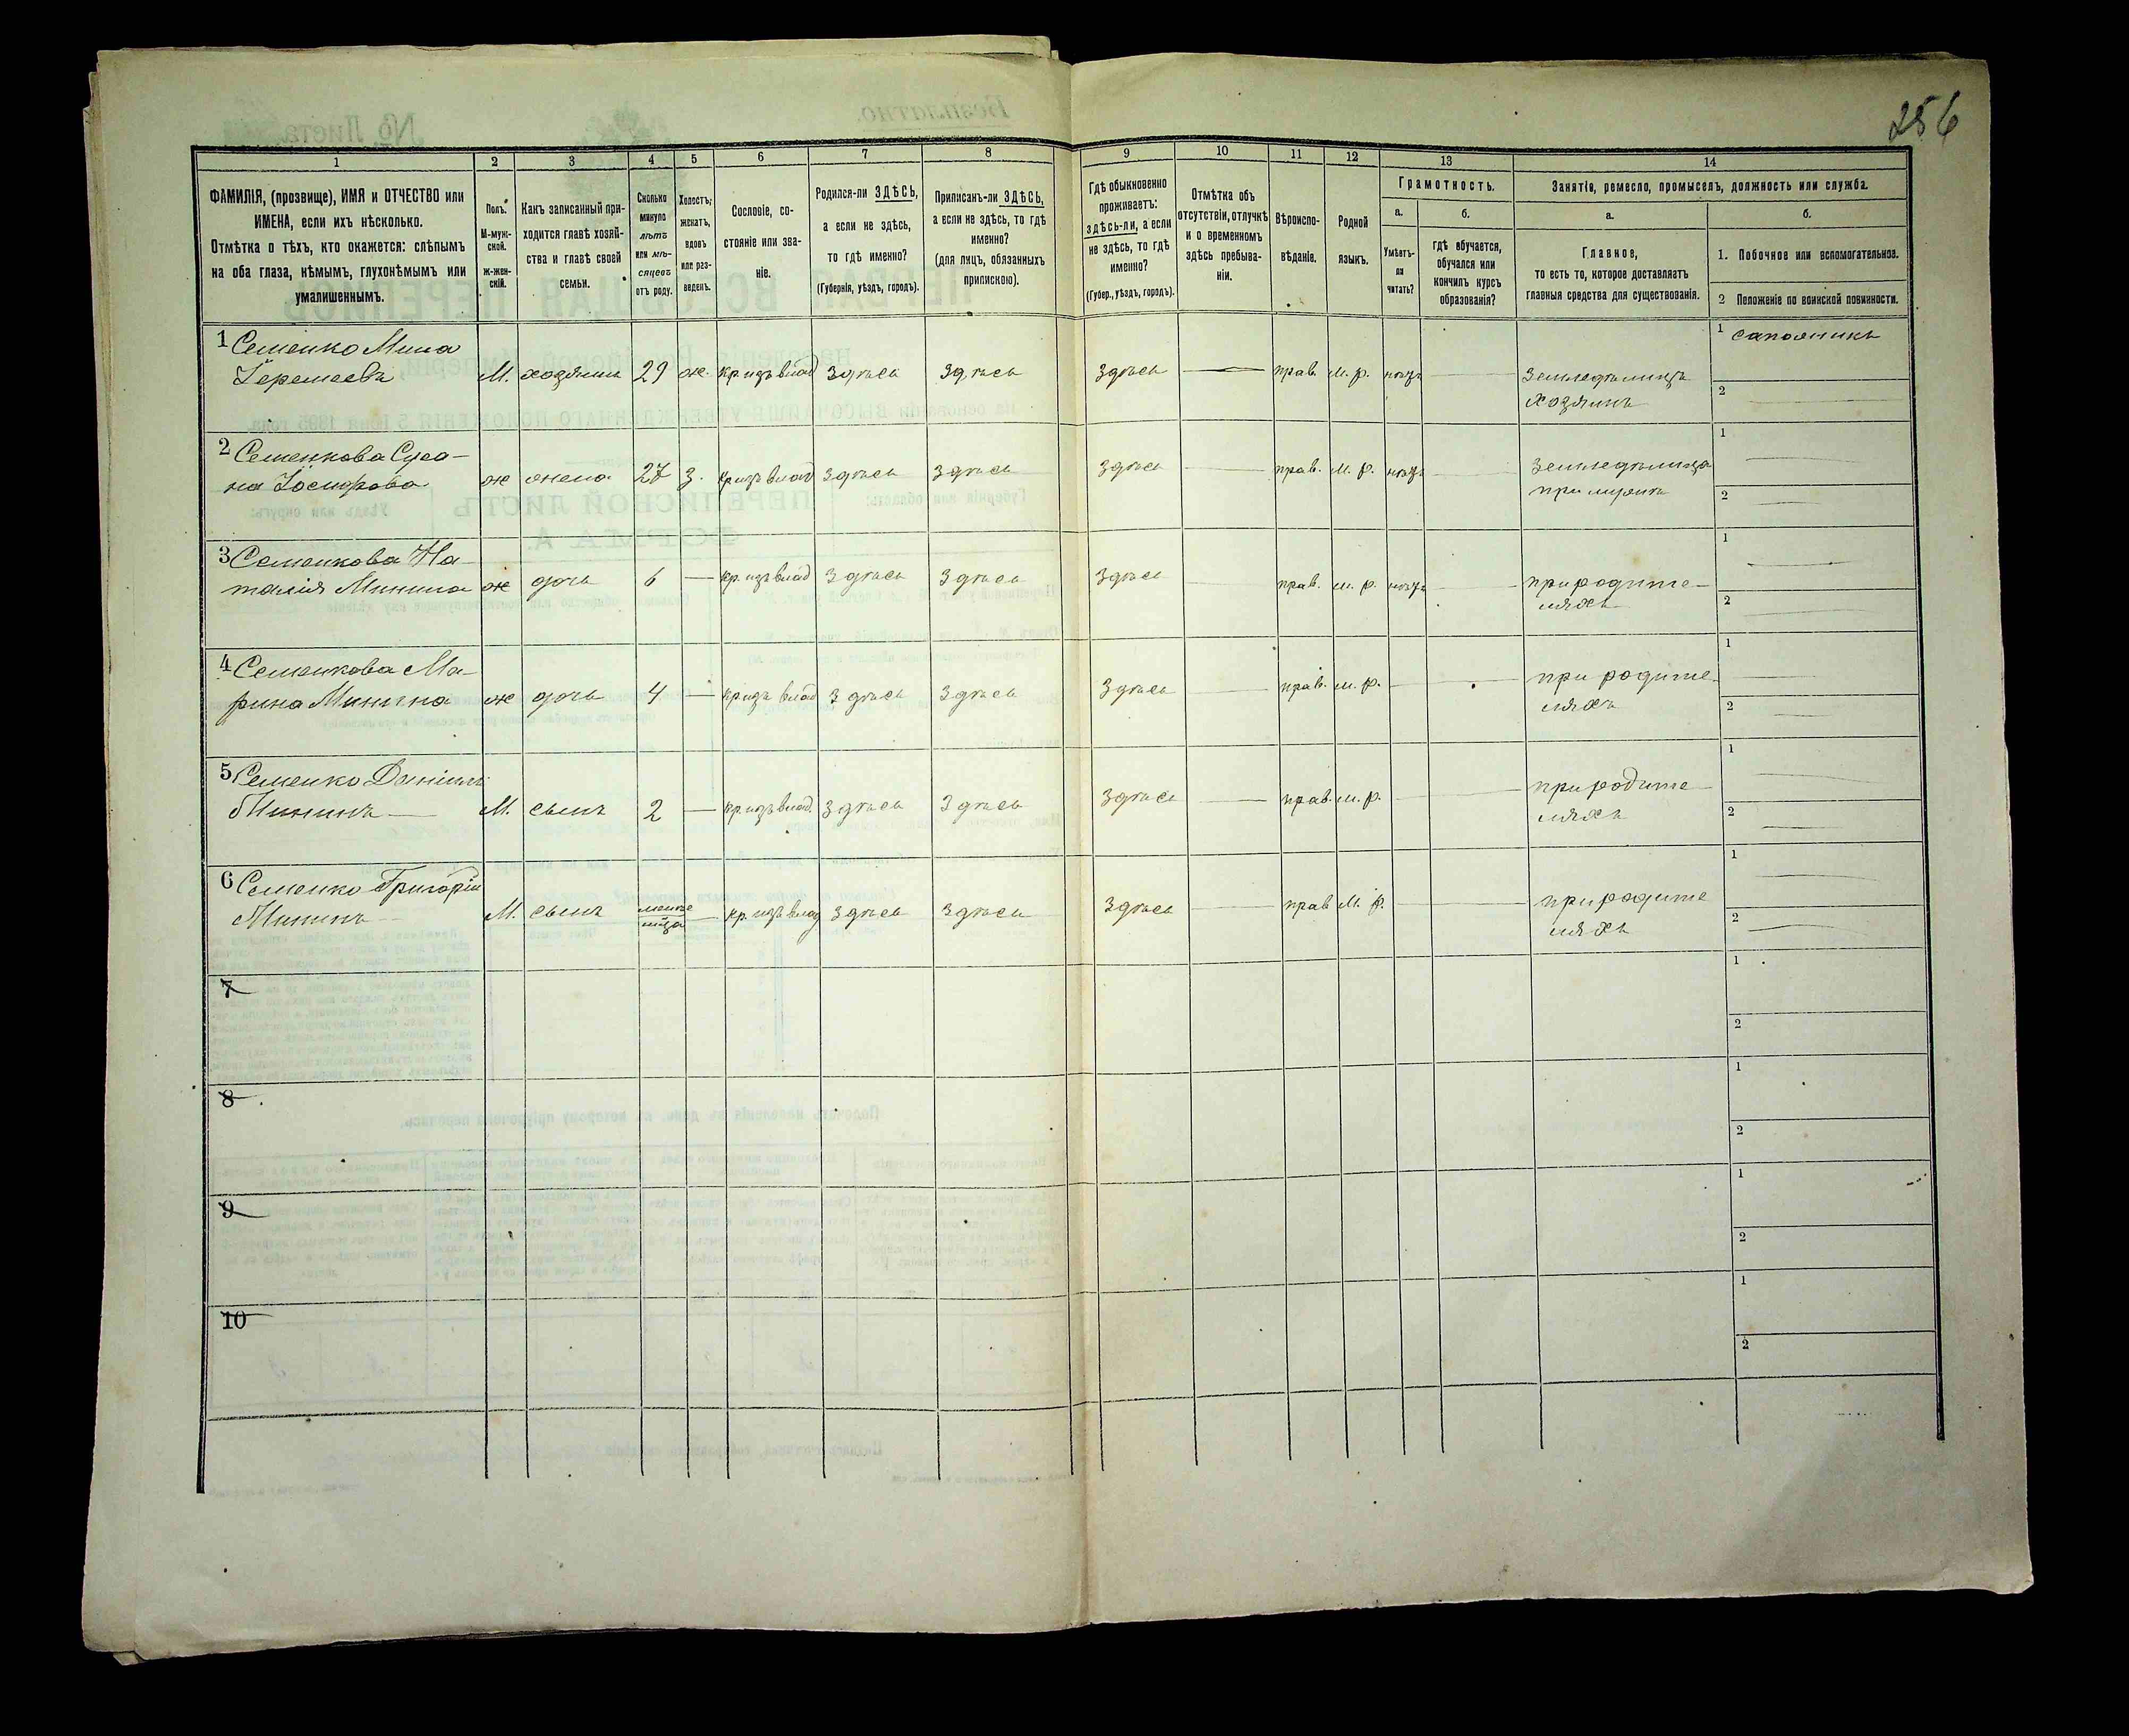 256
1 2 3 4 5 6 7 8 9 10 11 12 13 14
ФАМИЛІЯ, (прозвище), ИМЯ и ОТЧЕСТВО или
ИМЕНА, если ихъ нѣсколько.
Отмѣтка о тѣхъ, кто окажется: слѣпымъ
на оба глаза, нѣмымъ, глухонѣмымъ или
умалишеннымъ.
Полъ.
М-муж-
ской.
ж-жен-
скій.
Какъ записанный при-
ходится главѣ хозяй-
ства и главѣ своей
семьи.
Сколько
минуло
лѣтъ
или мѣ-
сяцевъ
отъ роду.
Холостъ,
женатъ,
вдовъ
или раз-
веденъ.
Сословіе, со-
стояніе или зва-
ніе.
Родился-ли ЗДѢСЬ,
а если не здѣсь,
то гдѣ именно?
(Губернія, уѣздъ, городъ).
Приписанъ-ли ЗДѢСЬ,
а если не здѣсь, то гдѣ
именно?
(для лицъ, обязанныхъ
припискою).
Гдѣ обыкновенно
проживаетъ:
здѣсь-ли, а если
не здѣсь, то гдѣ
именно?
(Губер., уѣздъ, городъ).
Отмѣтка объ
отсутствіи, отлучкѣ
и о временномъ
здѣсь пребыва-
ніи.
Вѣроиспо-
вѣданіе.
Родной
языкъ.
Грамотность.
а.
Умѣетъ-
ли
читать?
б.
гдѣ обучается,
обучался или
кончилъ курсъ
образованія?
Занятіе, ремесло, промыселъ, должность или служба.
а.
Главное,
то есть то, которое доставляетъ
главныя средства для существованія.
б.
1. Побочное или вспомогательное.
2 Положеніе по воинской повинности.
1 Семенко Мина
Іеремеевъ М. хозяинъ 29 ж. кр изъ влад здѣсь здѣсь здѣсь — прав. м. р. нѣтъ — земледѣлецъ
хозяинъ
1 сапожникъ
2 —
2 Семенкова Суса-
на Іосифова ж жена 27 з. кр изъ влад здѣсь здѣсь здѣсь — прав. м. р. нѣтъ — земледѣлица
при мужѣ
1 —
2 —
3 Семенкова На-
талія Минина ж дочь 6 — кр. изъ влад здѣсь здѣсь здѣсь — прав. м. р. нѣтъ — при родите-
ляхъ
1 —
2 —
4 Семенкова Ма-
рина Минина ж дочь 4 — кр изъ влад здѣсь здѣсь здѣсь — прав. м. р. — при родите-
ляхъ
1 —
2 —
5 Семенко Даніилъ
Мининъ — М. сынъ 2 — кр. изъ влад здѣсь здѣсь здѣсь — прав. м. р. — при родите-
ляхъ
1 —
2 —
6 Семенко Григорій
Мининъ М. сынъ — кр. изъ влад здѣсь здѣсь здѣсь — прав м. р. — при родите
ляхъ
1 —
2 —
7
1
2
8
1
2
9
1
2
10
1
2